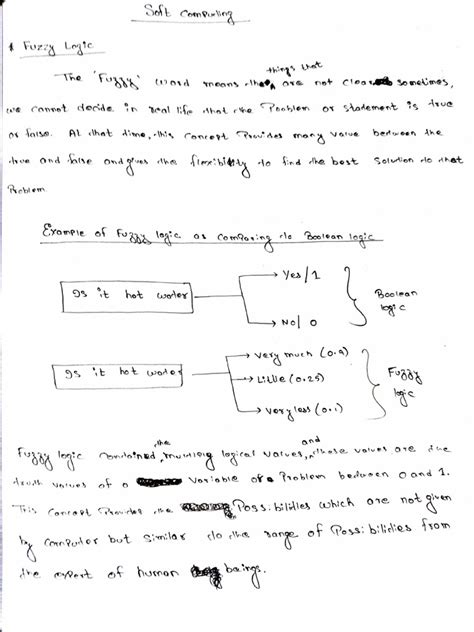 Soft Computing
* Fuzzy Logic
The 'Fuzzy' word means the things that are not clear sometimes,
we cannot decide in real life that the Problem or statement is true
or false. At that time, this concept Provides many value between the
true and false and gives the flexibility to find the best Solution to that
Problem
Example of Fuzzy logic as comparing to Boolean logic
Is it hot water
Yes/1
No/0
Boolean
logic
Is it hot water
very much (0.9)
Little (0.25)
very less (0.1)
Fuzzy
logic
Fuzzy logic contained, the multiple logical values, and these values are the
truth values of a Variable or a Problem between 0 and 1.
This Concept Provides the Possibilities which are not given
by computer but similar to the range of Possibilities from
the expert of human beings.